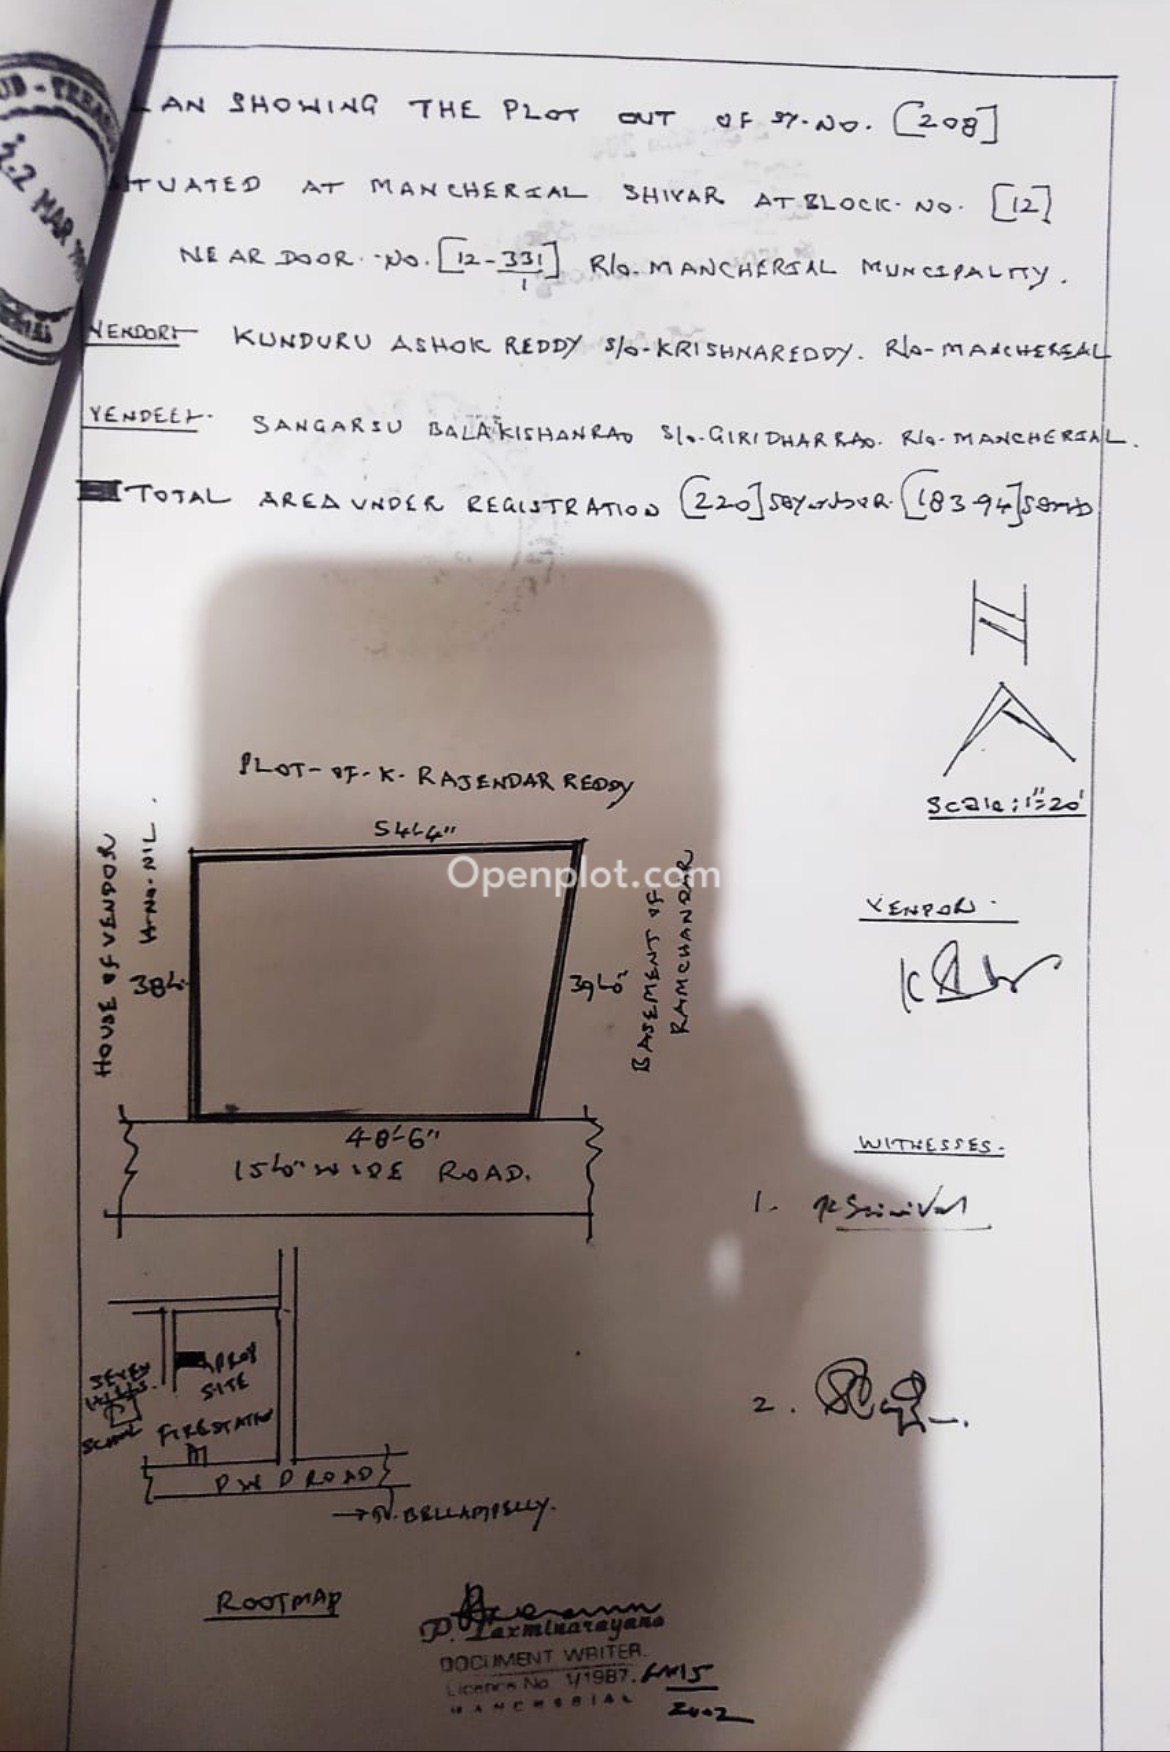 LAN SHOWING THE PLOT OUT OF SY.NO. [208]
TUATED AT MANCHERIAL SHIVAR AT BLOCK. NO. [12]
NEAR DOOR. NO. [12-331/1] R/o. MANCHERIAL MUNCIPALITY.
VENDOR:- KUNDURU ASHOK REDDY S/o-KRISHNAREDDY. R/o-MANCHEREAL
VENDEE:- SANGARSU BALAKISHANRAO S/o-GIRIDHARRAO. R/o-MANCHERIAL.
TOTAL AREA UNDER REGISTRATION [220] [183.94]
PLOT-OF-K. RAJENDAR REDDY
54'-4"
Scale: 1"=20'
Openplot.com
HOUSE OF VENDOR
H.NO. NIL.
BASEMENT OF
RAMCHANDAR
VENDOR.
48'-6"
15'-0" WIDE ROAD.
WITNESSES.
1. K Srinivas
2.
SEVEN
HILLS
SCHOOL
PROP
SITE
FIRESTATION
P W D ROAD
BELLAMPELLY.
ROOTMAP
P. Laxminarayana
DOCUMENT WRITER.
Licence No. 1/1987.
MANCHERIAL
2002
SUB-TREASURY
22 MAR